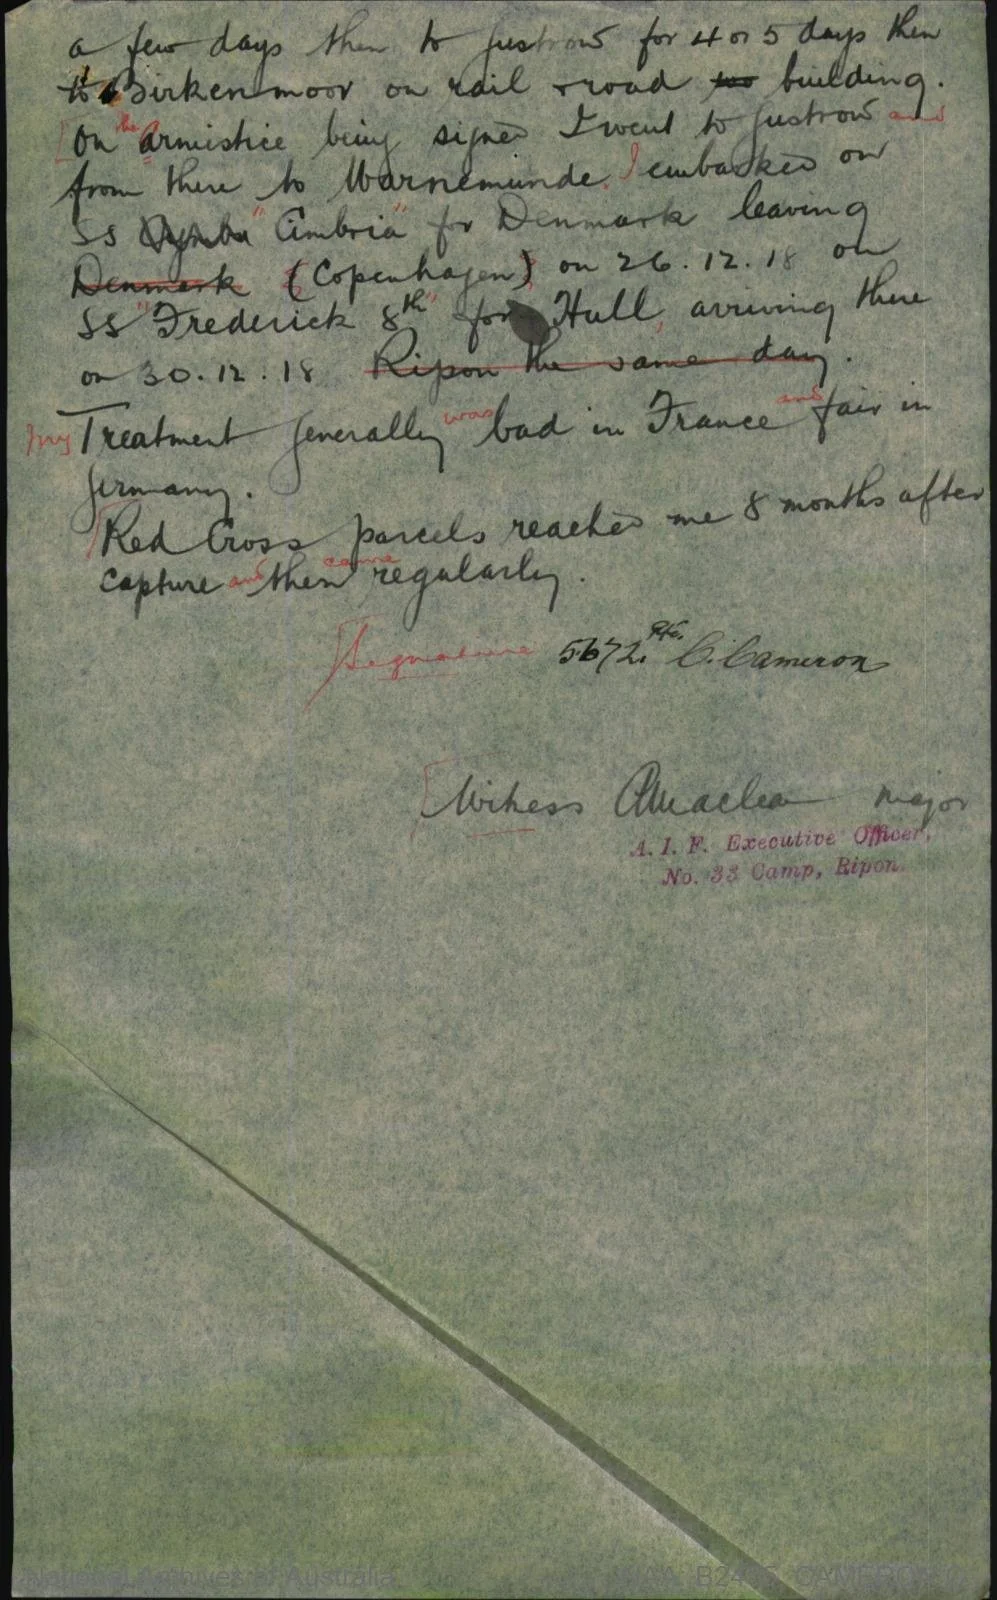 a few days then to Gustrow for 4 or 5 days then
to Birkenmoor on rail & road building.
On the Armistice being signed I went to Gustrow and
from there to Warnemunde. I embarked on
SS "Cimbria" for Denmark leaving
Denmark (Copenhagen) on 26.12.18 on
SS "Frederick 8th" for Hull, arriving there
on 30.12.18 Ripon the same day.
My Treatment generally was bad in France and fair in
Germany.
Red Cross parcels reached me 8 months after
capture and then came regularly.
Signature 5672. Pte. C. Cameron
Witness Major
A. I. F. Executive Officer,
No. 33 Camp, Ripon.
National Archives of Australia NAA: B2455, CAMERON